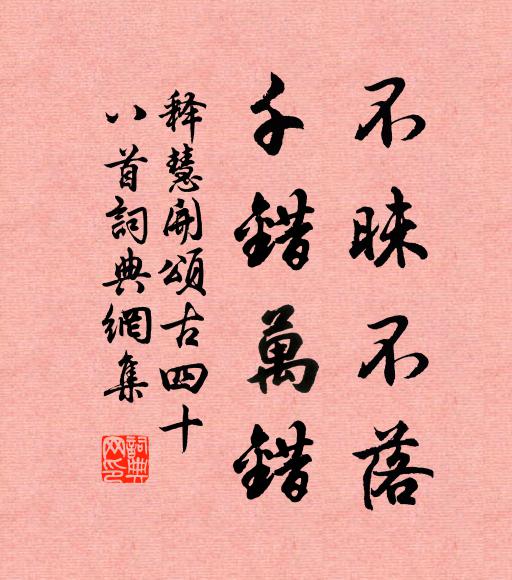 不昧不落
千錯萬錯
释慧開頌古四十
八首詞典網集
詞典网印